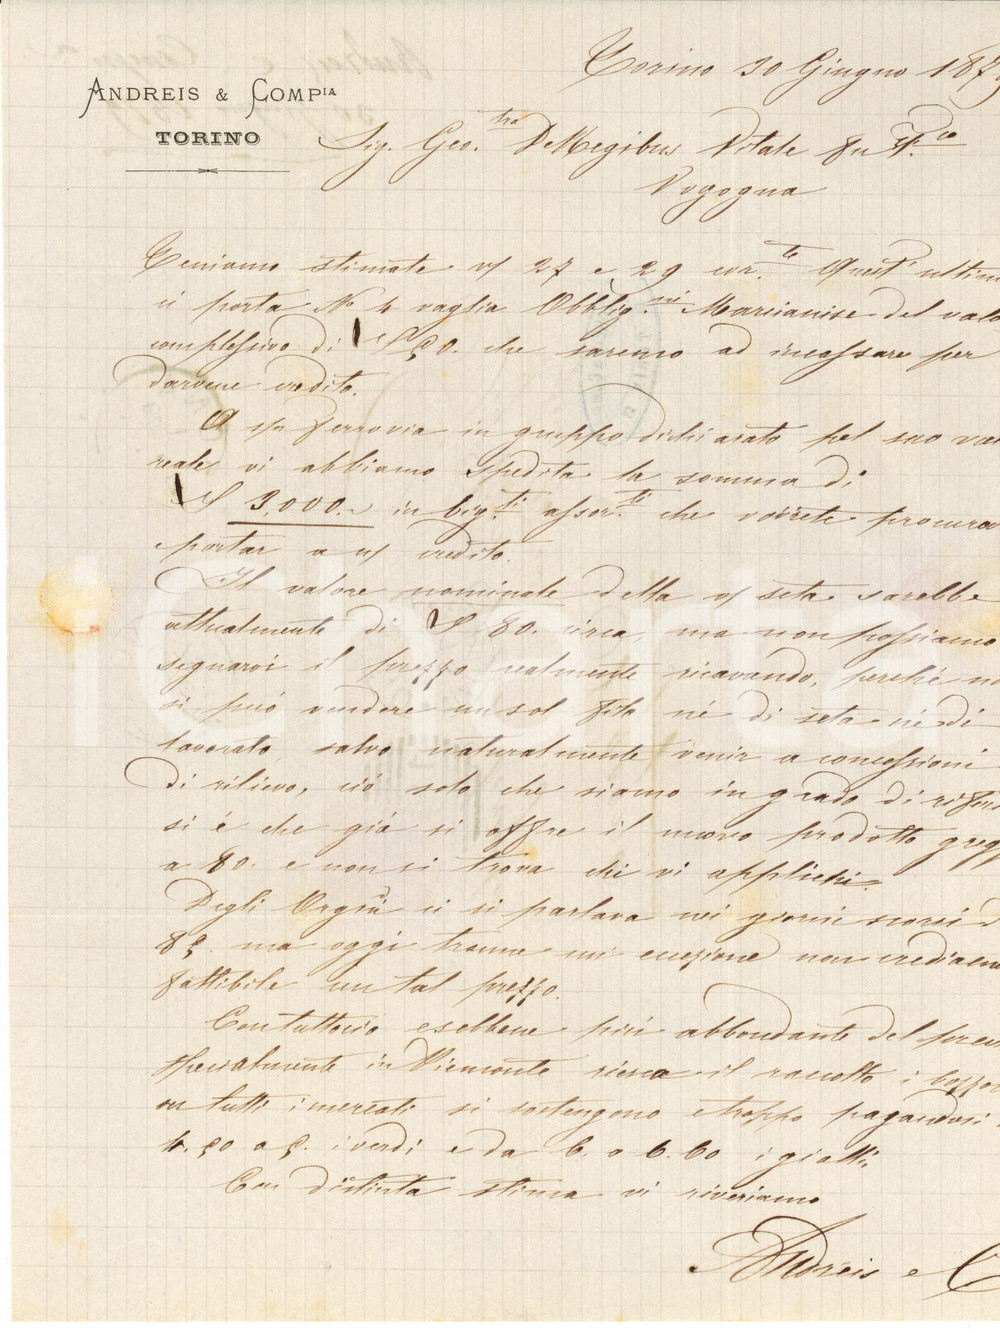 ANDREIS & COMPIA
TORINO
Torino 30 Giugno 187
Sig. Geo.tra DeRegibus Vitale fu
Vogogna
Teniamo stimate v/ 27 e 29 corr.te Quest'ultim
ci porta No 4 vaglia Obblig.ni Marcianise del valo
complessivo di che saremo ad incassare per
darvene credito.
A s/m ferrovia in gruppo dichiarato pel suo va
reale vi abbiamo spedita la somma di
3,000.- in big.ti assor.ti che vorrete procura
portar a n/ credito.
Il valore nominale della v/ seta sarebbe
attualmente di 80. circa, ma non possiamo
segnarvi il prezzo realmente ricavando, perché no
si può vendere un sol filo né di seta né di
lavorato, salvo naturalmente venir a concessioni
di rilievo, ciò solo che siamo in grado di riferi
si è che già si offre il nuovo prodotto gregg
a 80. e non si trova chi vi applichi.
Degli ci si parlava nei giorni scorsi d
85. ma oggi tranne un' eccezione non crediam
fattibile un tal prezzo.
Contuttociò esebbene più abbondante del prev
specialmente in Piemonte riesca il raccolto i bozzo
su tutti i mercati si sostengono etroppo pagandosi
4.50 a 5. i verdi e da 6. a 6.60 i gialli.
Con distinta stima vi riveriamo
Andreis e C
iCharta